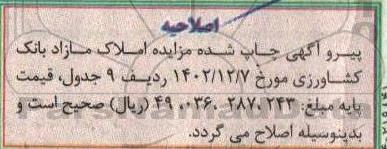 اصلاحیه
پیرو آگهی چاپ شده مزایده املاک مازاد بانک
کشاورزی مورخ ۱۴۰۲/۱۲/۷ ردیف ۹ جدول، قیمت
پایه مبلغ: ۴۹،۰۳۶،۲۸۷،۲۴۳ (ریال) صحیح است و
بدینوسیله اصلاح می گردد.